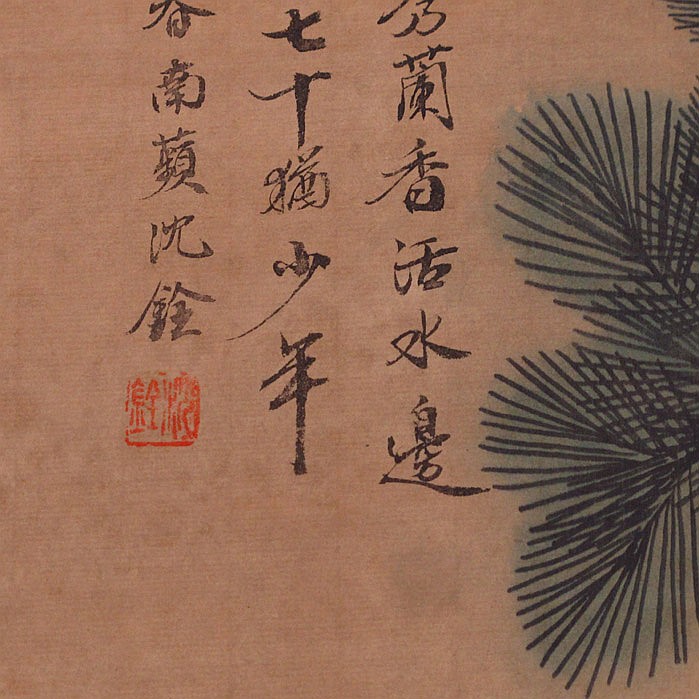 蘭香活水邊
七十猶少年
春南蘋沈銓